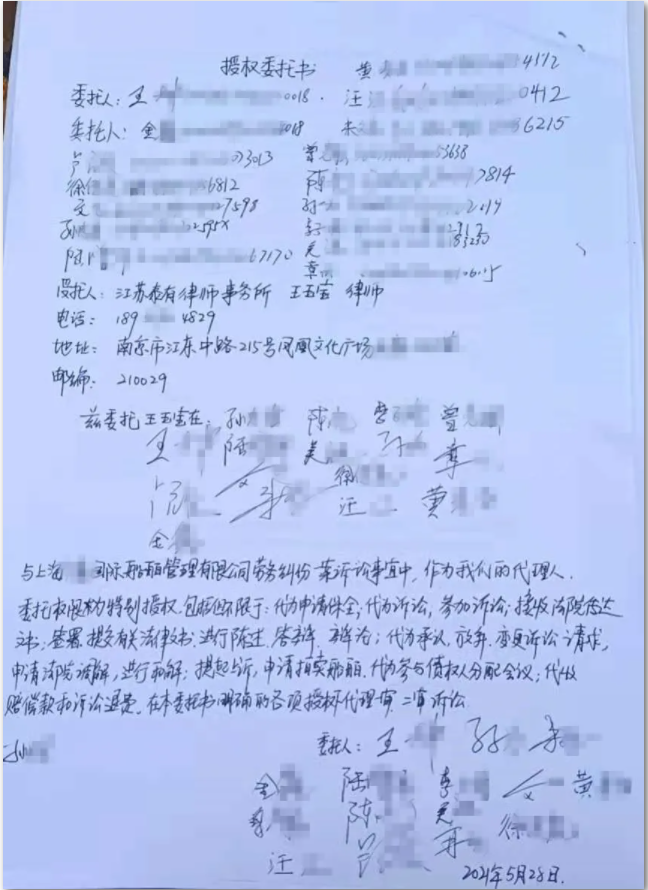 授权委托书 黄 4172
委托人：王 0018． 汪 0412
委托人：金 018 朱 86215
卢 03013 曾 53638
徐 6812 陈 7814
文 7598 孙 2019
孙 2595X
陆 67170 章 06015
受托人：江苏泰有律师事务所 王玉宝 律师
电话：189 4829
地址：南京市江东中路215号凤凰文化广场
邮编：210029
兹委托王玉宝在： 孙 陈 李 曾
王 陆 吴 孙 章
徐
汪 黄
金
与上海 国际船舶管理有限公司劳务纠纷一案诉讼事宜中，作为我们的代理人．
委托权限为特别授权，包括但不限于：代为申请保全；代为诉讼，参加诉讼；接收法院送达
文书；签署、提交有关法律文书；进行陈述、答辩、辩论；代为承认、放弃、变更诉讼请求，
申请法院调解，进行和解；提起上诉，申请拍卖船舶．代为参与债权人分配会议；代收
赔偿款和诉讼退费．在本委托书明确的各项授权代理一审、二审诉讼．
孙 委托人：王 孙
金 陆 李 文 黄
陈 徐
汪 吕
2021年5月28日．